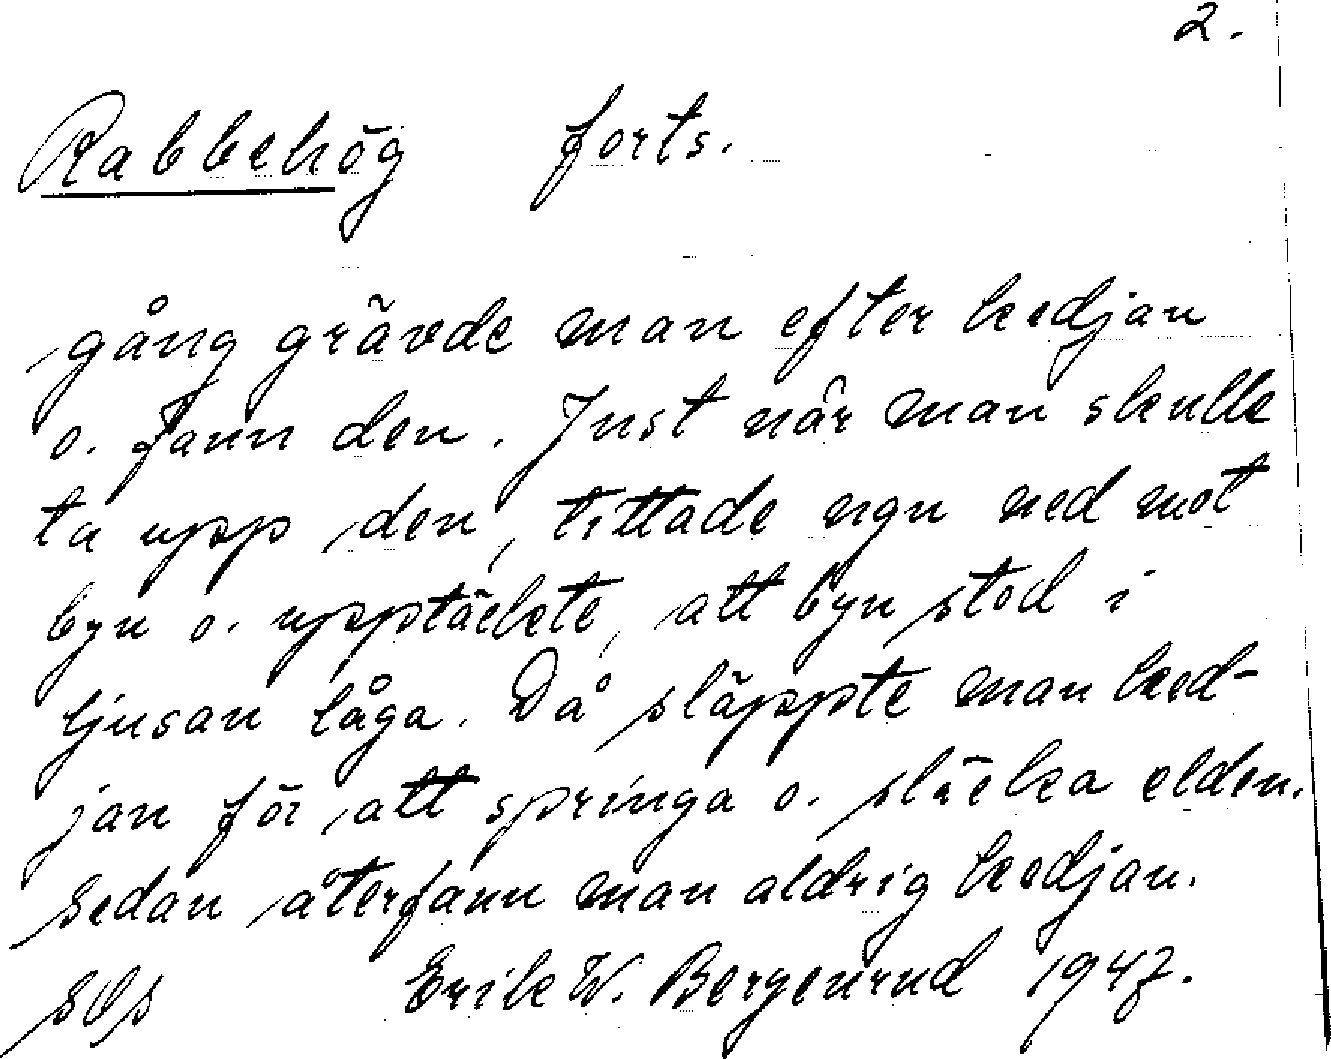 2.
Rabbehög forts.
gång grävde man efter kedjan
o. fann den. Just när man skulle
ta upp den, tittade ngn ned mot
byn o. upptäckte, att byn stod i
ljusan låga. Då släppte man ked-
jan för att springa o. släcka elden.
Sedan återfann man aldrig kedjan.
Erik W. Bergenrud 1947.